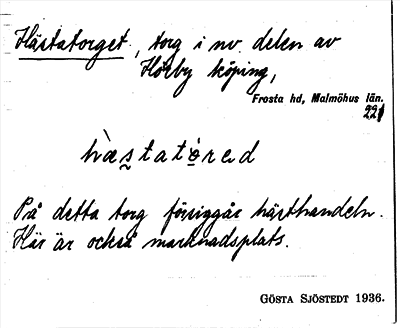 Hästatorget, torg i nv. delen av
Hörby köping,
Frosta hd, Malmöhus län.
221
hæstatòred
På detta torg försiggår hästhandeln.
Här är också marknadsplats.
GÖSTA SJÖSTEDT 1936.